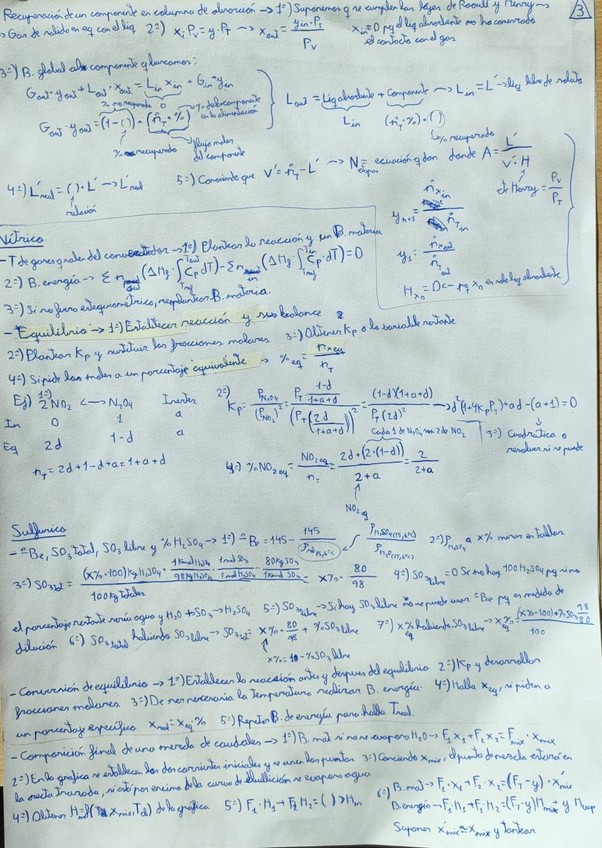 3
Recuperación de un componente en columna de absorción → 1º) Suponemos q se cumplen las leyes de Raoult y Henry →
→ Gas de salida en eq con el liq 2º) x_i P_v = y · P_T → x_out = y_in · P_T / P_v x_in = 0 pq el liq absorbente no ha
el contacto con el gas
3º) B. global al componente q buscamos:
G_out · y_out + L_out · x_out = L_in x_in + G_in · y_in
% no recuperado 0 % del componente en la alimentación
G_out · y_out = (1 - ( )) · (ṅ_T · %)
% recuperado flujo molar del componente
L_out = Liq absorbente + Componente → L_in = L' → liq libre de soluto
L_in (ṅ_T · %) · ( )
% recuperado
4º) L'_real = ( ) · L' → L'_real
relación
5º) Conociendo que V' = ṅ_T - L' → N_etapas = ecuación q dan donde A = L' / V' · H
cte Henry = P_v / P_T
y_n+1 = ṅ_x in / ṅ_T in
y_1 = ṅ_x out / ṅ_T out
H_x0 = 0 ← pq x_0 es solo liq absorbente
Nítrico
- T de gases q salen del convertidor → 1º) Plantear la reacción y un B. materia
2º) B. energía → Σ n_out (ΔH_f · ∫ C_p dT) - Σ n_in (ΔH_f · ∫ C_p dT) = 0
3º) Si no fuera estequiométrico, replantear B. materia.
- Equilibrio → 1º) Establecer reacción y sus balances
2º) Plantear K_p y sustituir las fracciones molares 3º) Obtener K_p o la variable restante
4º) Si pide los moles a un porcentaje equivalente → %_eq = n_x eq / n_T
Ej) 1º) 2NO₂ <—> N₂O₄ Inertes
In 0 1 a
Eq 2d 1-d a
n_T = 2d + 1 - d + a = 1 + a + d
2º) K_p = P_N₂O₄ / (P_NO₂)² = P_T (1-d / 1+a+d) / (P_T (2d / 1+a+d))² = (1-d)(1+a+d) / P_T (2d)² → d²(1+4K_p P_T) + ad - (a+1) = 0
Cada 1 de N₂O₄ son 2 de NO₂
3º) Cuadrática o resolver si se puede
4º) % NO₂ eq = NO₂ eq / n_T = 2d + (2·(1-d)) / 2+a = 2 / 2+a
NO₂ eq
Sulfúrico
- ºBe, SO₃ total, SO₃ libre y % H₂SO₄ → 1º) ºBe = 145 - 145 / ρ_rel 15,6ºC
ρ_H₂SO₄ (15,6ºC) / ρ_H₂O (15,6ºC)
2º) ρ_H₂SO₄ a x% mirar en tablas
3º) SO₃ total = (x% · 100) kg H₂SO₄ / 100 kg totales · 1 kmol H₂SO₄ / 98 kg H₂SO₄ · 1 mol SO₃ / 1 mol H₂SO₄ · 80 kg SO₃ / 1 kmol SO₃ = x% · 80 / 98
4º) SO₃ libre = 0 Si no hay 100 H₂SO₄ pq sino
el porcentaje restante sería agua y H₂O + SO₃ → H₂SO₄ 5º) SO₃ libre → Si hay SO₃ libre no se puede usar ºBe pq es medida de
dilución 6º) SO₃ total habiendo SO₃ libre → SO₃ tot = x% · 80 / 98 + % SO₃ libre 7º) x% habiendo SO₃ libre → x%_eq = (x% · 100) + % SO₃ 98 / 80 / 100
x% = 1 - % SO₃ libre
- Conversión de equilibrio → 1º) Establecer la reacción antes y despues del equilibrio 2º) K_p y desarrollar
fracciones molares 3º) De ser necesaria la temperatura realizar B. energía. 4º) Halla x_eq, si piden a
un porcentaje específico x_real = x_eq · % 5º) Repetir B. de energía para hallar T real.
- Composición final de una mezcla de caudales → 1º) B. mat si no se evapora H₂O → F₁ x₁ + F₂ x₂ = F_mix · x_mix
2º) En la grafica se establecen los dos corrientes iniciales y se unen los puntos 3º) Conocido x_mix, el punto de mezcla estará en
la recta trazada, si está por encima de la curva de ebullición se evapora agua
4º) Obtener H_mix(x_mix, T) de la grafica 5º) F₁ · H₁ + F₂ H₂ = ( ) > H_m
6º) B. mat → F₁ · x₁ + F₂ · x₂ = (F_T - y) · x'_mix
B. energía → F₁ · H₁ + F₂ · H₂ = (F_T - y) H_mix + y H_vap
Suponer x'_mix ≈ x_mix y tantear